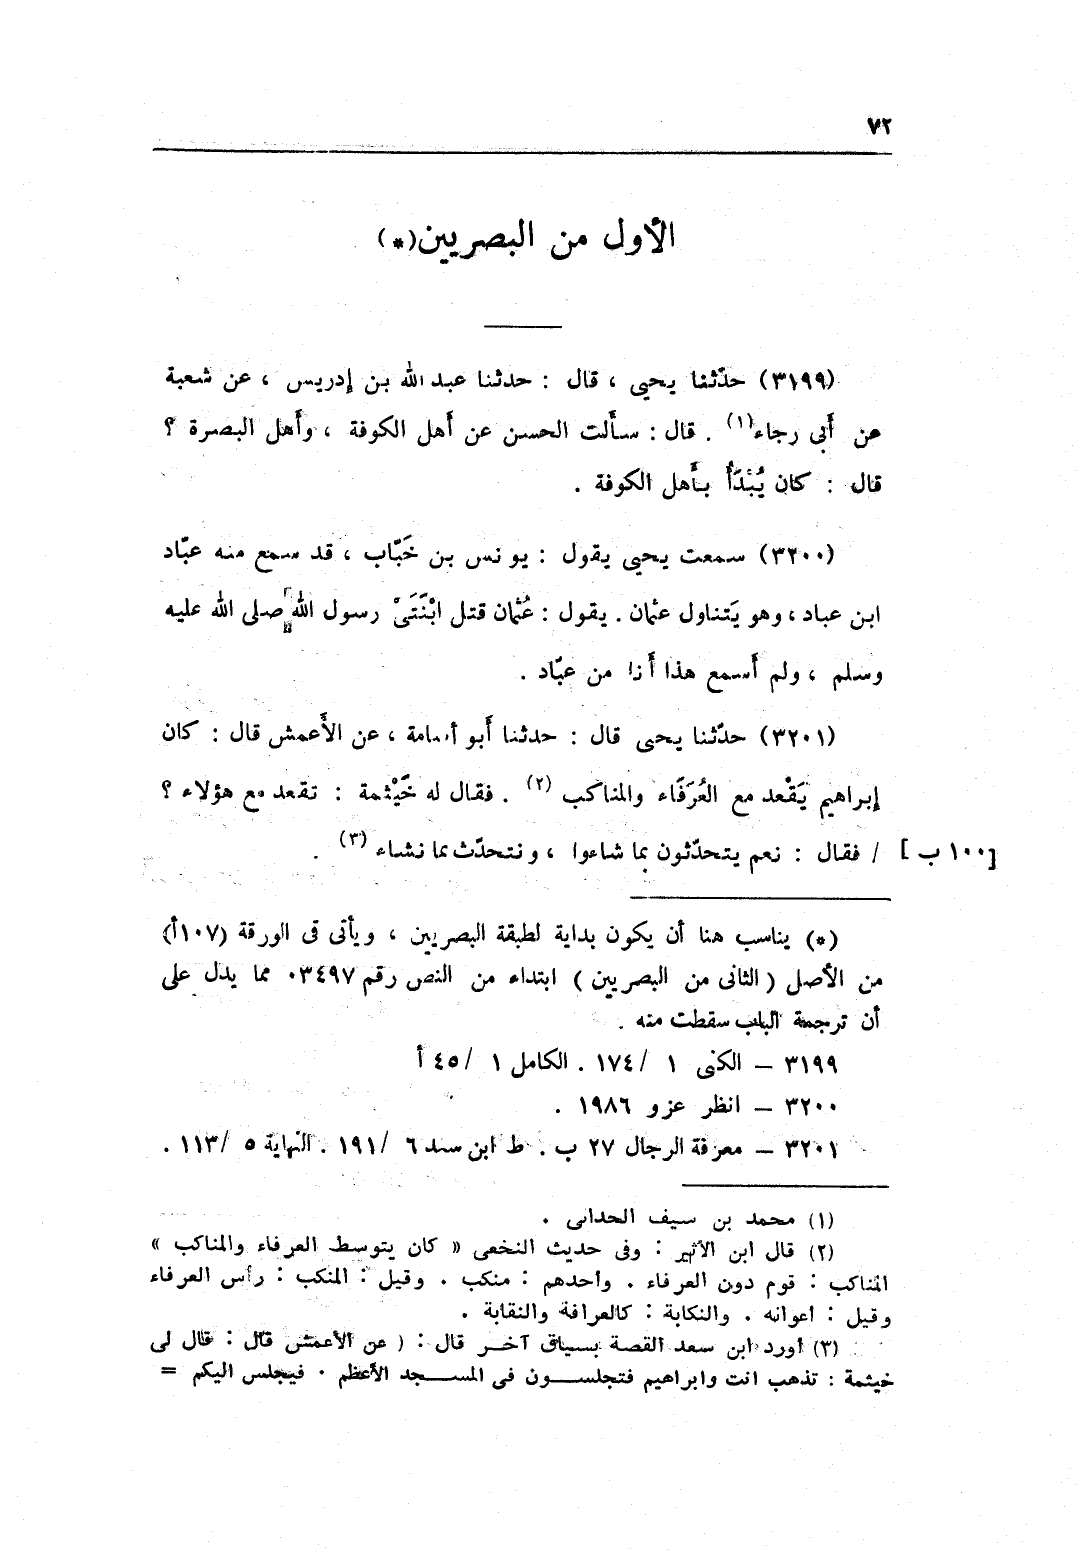 ٧٢
الأول من البصريين(*)
(٣١٩٩) حدّثنا يحيى ، قال : حدثنا عبد الله بن إدريس ، عن شعبة
عن أَبى رجاء(١) . قال : سأَلت الحسن عن أَهل الكوفة ، وأَهل البصرة ؟
قال : كان يُبْدَأُ بأَهل الكوفة .
(٣٢٠٠) سمعت يحيى يقول : يونس بن خَبّاب ، قد سمع منه عبّاد
ابن عباد ، وهو يَتناول عثمان . يقول : عُثمان قتل ابْنَتَىْ رسول الله صلى الله عليه
وسلم ، ولم أَسمع هذا أَنا من عبّاد .
(٣٢٠١) حدّثنا يحيى قال : حدثنا أَبو أسامة ، عن الأَعمش قال : كان
إبراهيم يَقْعد مع العُرَفَاء والمناكب (٢) . فقال له خَيْثمة : تقعد مع هؤلاء ؟
[١٠٠ ب] / فقال : نعم يتحدّثون بما شاءوا ، ونتحدّث بما نشاء (٣) .
(*) يناسب هنا أن يكون بداية لطبقة البصريين ، ويأتى فى الورقة (١٠٧أ)
من الأصل (الثانى من البصريين) ابتداء من النص رقم ٠٣٤٩٧ مما يدل على
أن ترجمة الباب سقطت منه .
٣١٩٩ – الكنى ١ /١٧٤ . الكامل ١ /٤٥ أ
٣٢٠٠ – انظر عزو ١٩٨٦ .
٣٢٠١ – معرفة الرجال ٢٧ ب . ط ابن سعد ٦ /١٩١ . النهاية ٥ /١١٣ .
(١) محمد بن سيف الحدانى .
(٢) قال ابن الأثير : وفى حديث النخعى « كان يتوسط العرفاء والمناكب »
المناكب : قوم دون العرفاء . وأحدهم : منكب . وقيل : المنكب : رأس العرفاء
وقيل : أعوانه . والنكابة : كالعرافة والنقابة .
(٣) أورد ابن سعد القصة بسياق آخر قال : ( عن الأعمش قال : قال لى
خيثمة : تذهب انت وابراهيم فتجلسون فى المسجد الأعظم ٠ فيجلس اليكم =